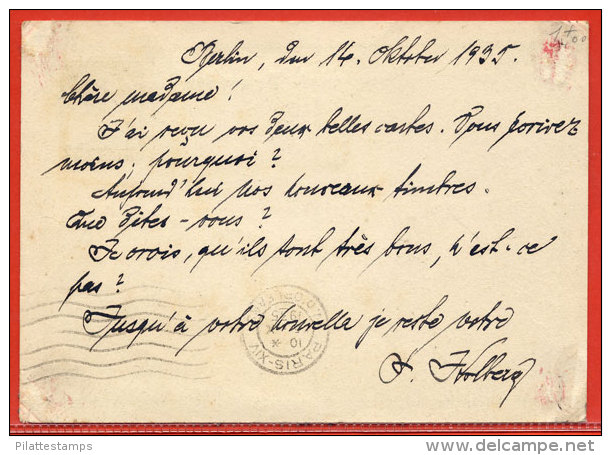 1+00
Berlin, den 14. Oktober 1935.
Chère madame!
J'ai reçu vos deux belles cartes. Vous écrivez
moins, pourquoi?
Aujourd'hui nos nouveaux timbres.
Que dites-vous?
Je crois, qu'ils sont très bons, n'est-ce
pas?
Jusqu'à votre nouvelle je reste votre
Holberg
PARIS-XIV
Pilattestamps
delcampe.net